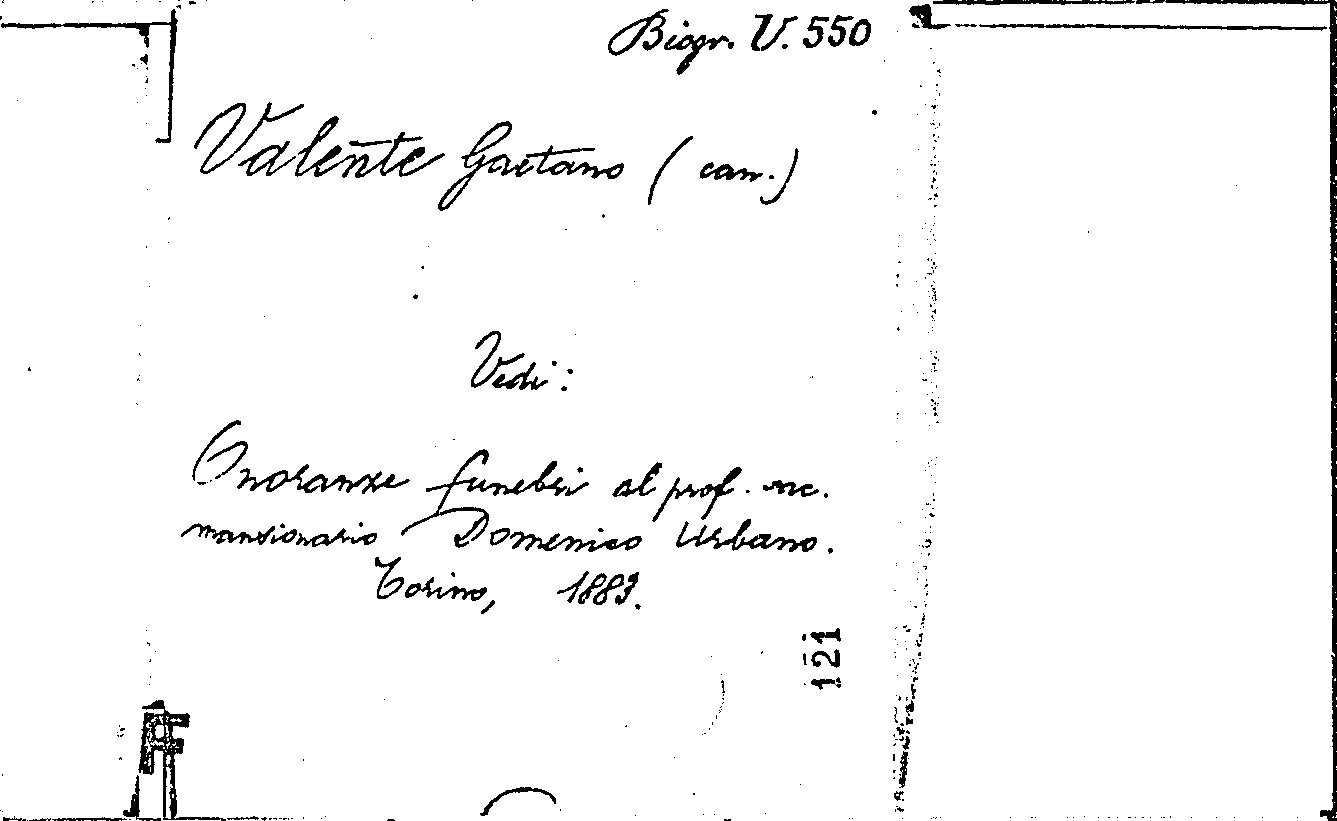 Biogr. V. 550
Valente Gaetano (can.)
Vedi:
Onoranze funebri al prof.
mansionario Domenico Urbano.
Torino, 1883.
121